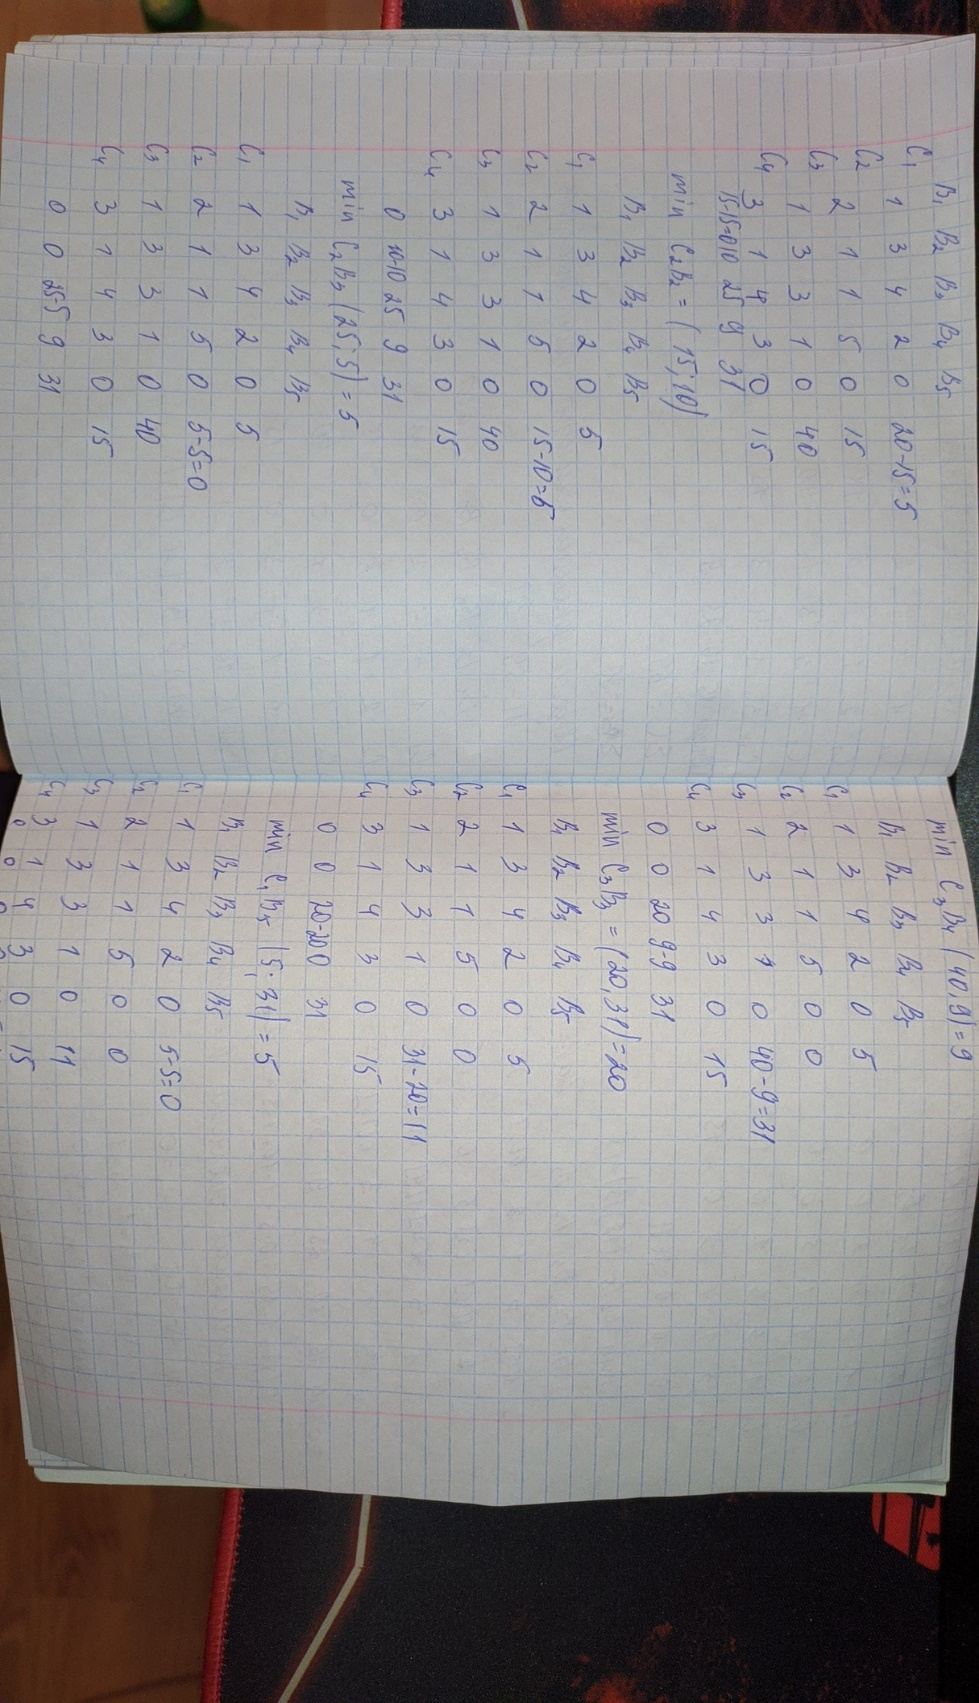 B₁ B₂ B₃ B₄ B₅
C₁ 1 3 4 2 0 20-15=5
C₂ 2 1 1 5 0 15
C₃ 1 3 3 1 0 40
C₄ 3 1 4 3 0 15
15-15=0 10 25 9 31
min C₂B₂ = (15; 10)
B₁ B₂ B₃ B₄ B₅
C₁ 1 3 4 2 0 5
C₂ 2 1 1 5 0 15-10=5
C₃ 1 3 3 1 0 40
C₄ 3 1 4 3 0 15
0 10-10 25 9 31
min C₂B₃ (25; 5) = 5
B₁ B₂ B₃ B₄ B₅
C₁ 1 3 4 2 0 5
C₂ 2 1 1 5 0 5-5=0
C₃ 1 3 3 1 0 40
C₄ 3 1 4 3 0 15
0 0 25-5 9 31
min C₃B₄ (40, 9) = 9
B₁ B₂ B₃ B₄ B₅
C₁ 1 3 4 2 0 5
C₂ 2 1 1 5 0 0
C₃ 1 3 3 1 0 40-9=31
C₄ 3 1 4 3 0 15
0 0 20 9-9 31
min C₃B₃ = (20, 31) = 20
B₁ B₂ B₃ B₄ B₅
C₁ 1 3 4 2 0 5
C₂ 2 1 1 5 0 0
C₃ 1 3 3 1 0 31-20=11
C₄ 3 1 4 3 0 15
0 0 20-20 0 31
min C₁B₅ (5; 31) = 5
B₁ B₂ B₃ B₄ B₅
C₁ 1 3 4 2 0 5-5=0
C₂ 2 1 1 5 0 0
C₃ 1 3 3 1 0 11
C₄ 3 1 4 3 0 15
0 0